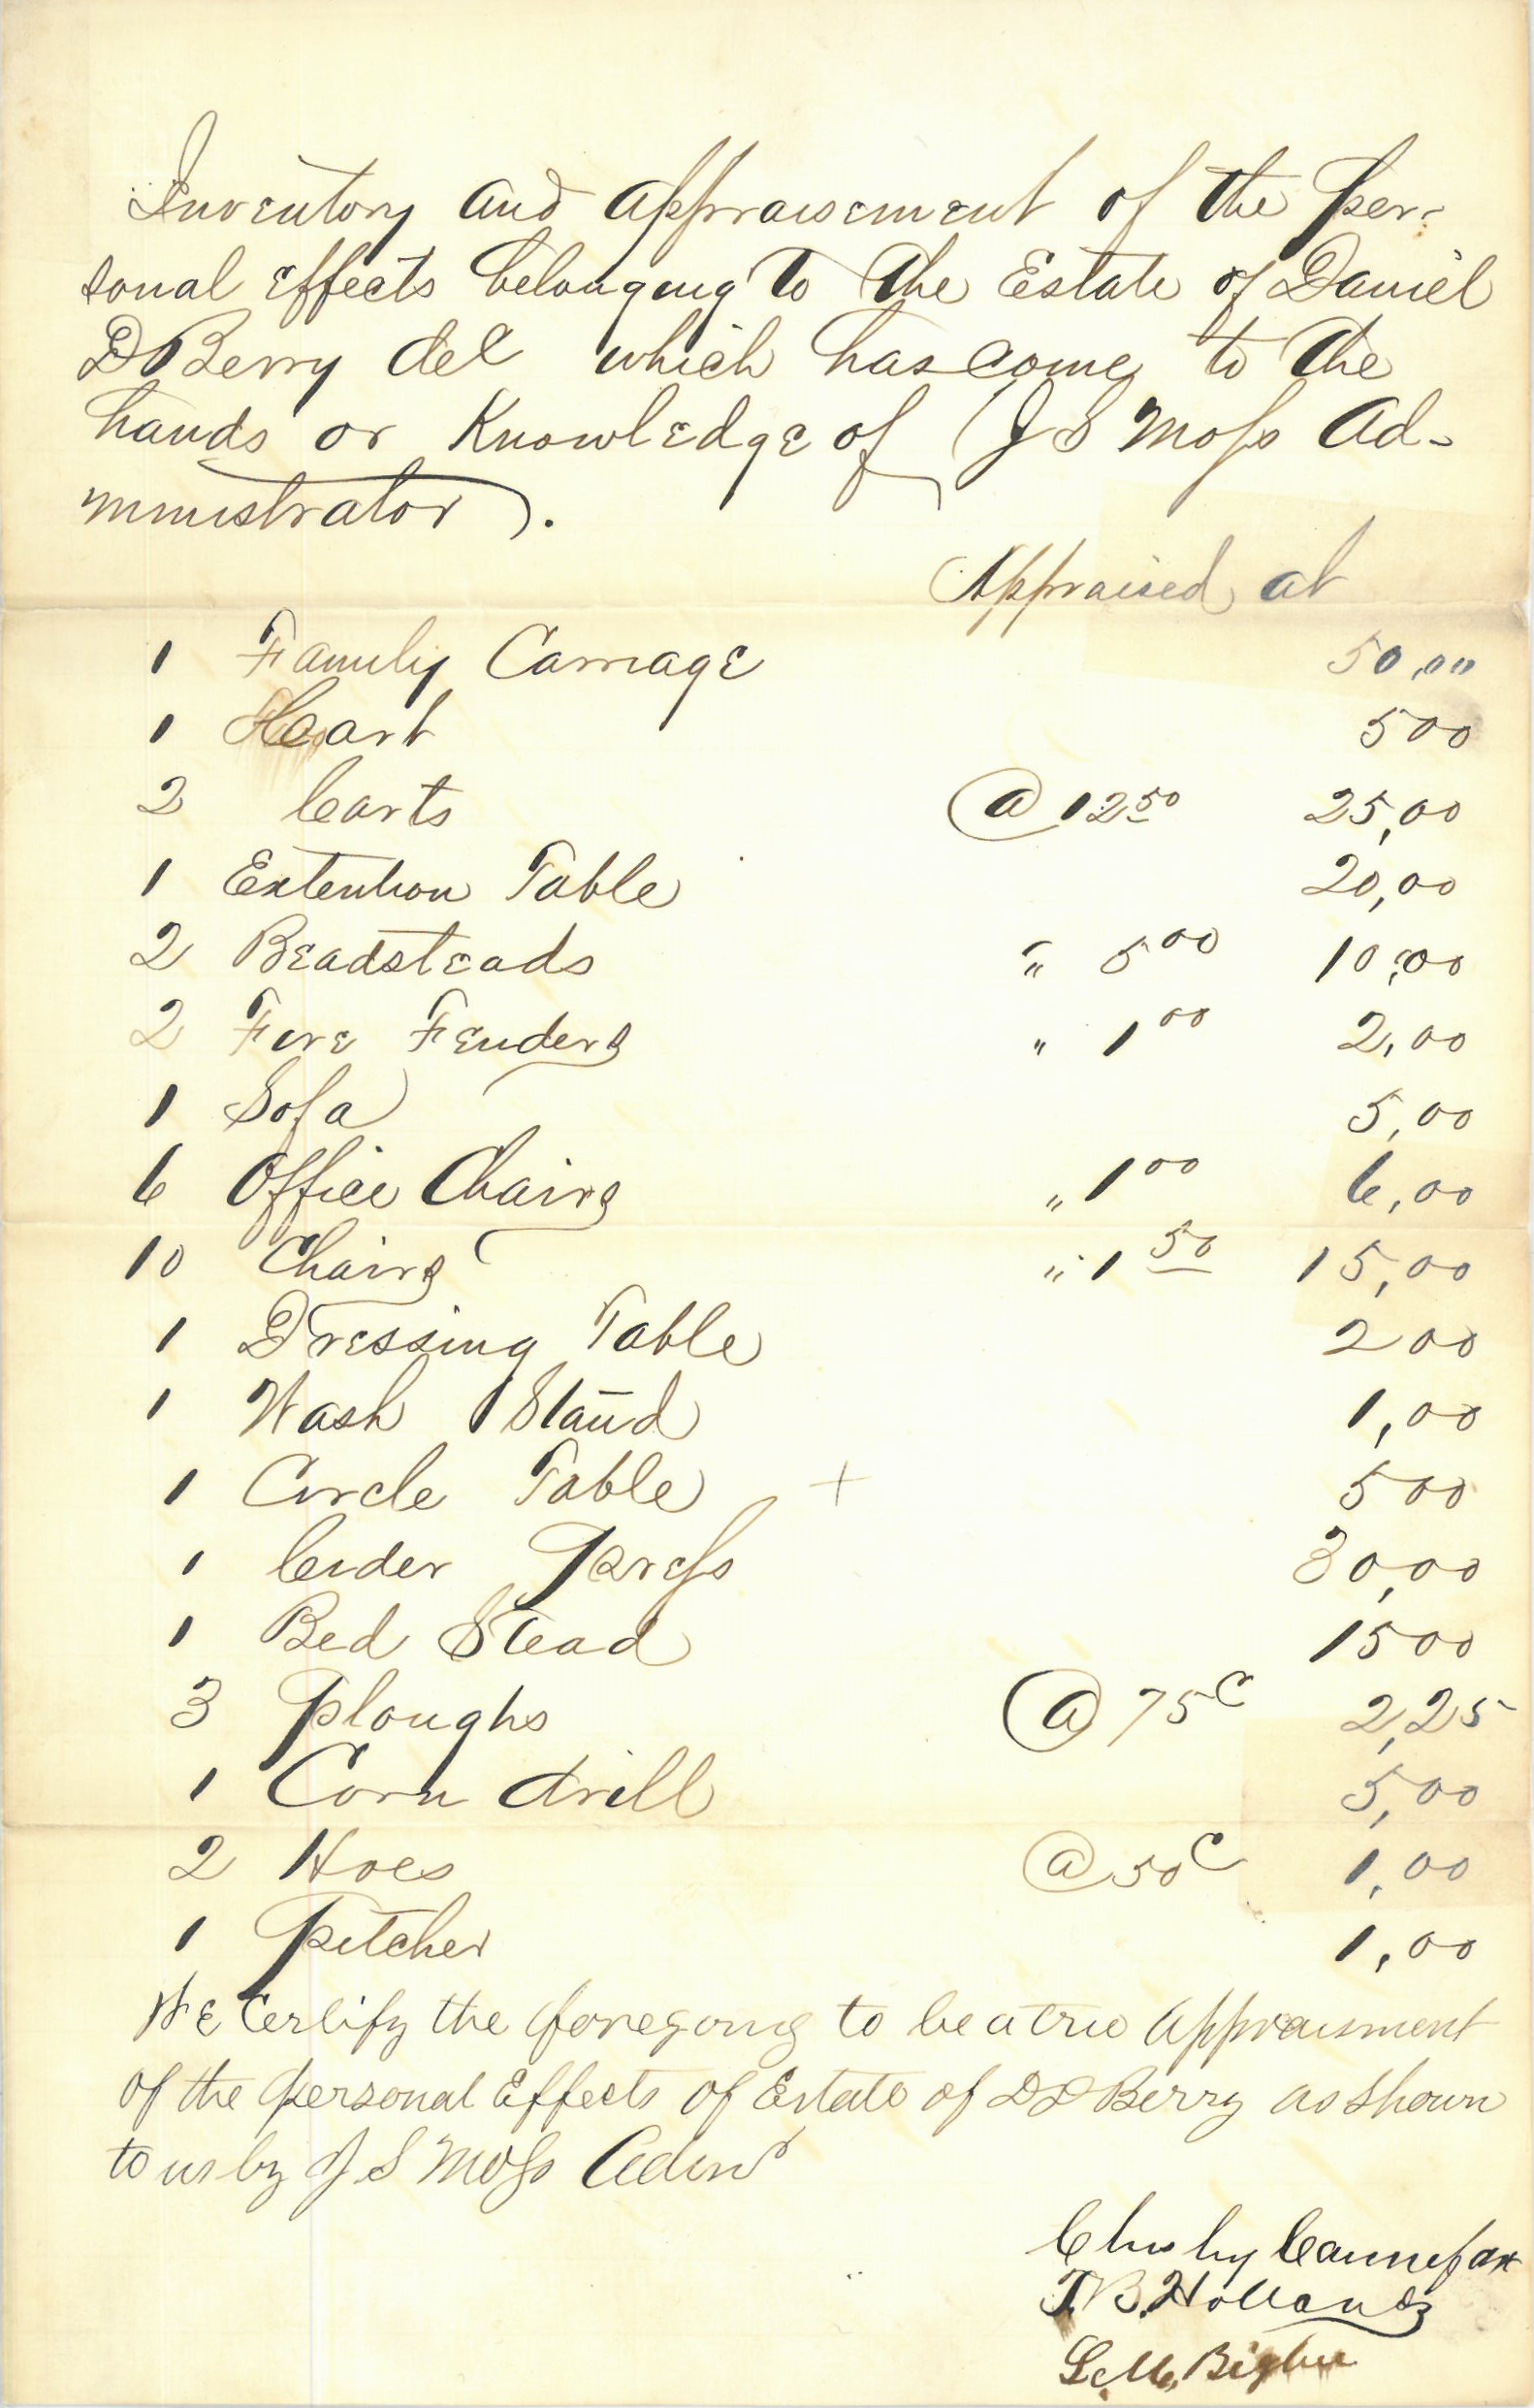 Inventory and appraisement of the Per-
sonal effects belonging to the Estate of Daniel
D Berry dec which has come to the
hands or Knowledge of (J S Moss Ad-
ministrator).
Appraised at
1 Family Carriage 50,00
1 Cart 500
2 Carts @ 12 50 25,00
1 Extention Table 20,00
2 Beadsteads " 5 00 10,00
2 Fire Fenders " 1 00 2,00
1 Sofa 5,00
6 Office Chairs " 1 00 6,00
10 Chairs " 1 50 15,00
1 Dressing Table 2 00
1 Wash Stand 1,00
1 Circle Table + 5 00
1 Cider Press 30,00
1 Bed Stead 15 00
3 Ploughs @ 75 c 2,25
1 Corn drill 5,00
2 Hoes @ 50 c 1,00
1 Pitcher 1,00
We Certify the foregoing to be a true appraisment
of the personal Effects of Estate of D D Berry as shown
to us by J S Moss Admr
Cannefax
T. B. Holland
L. M.